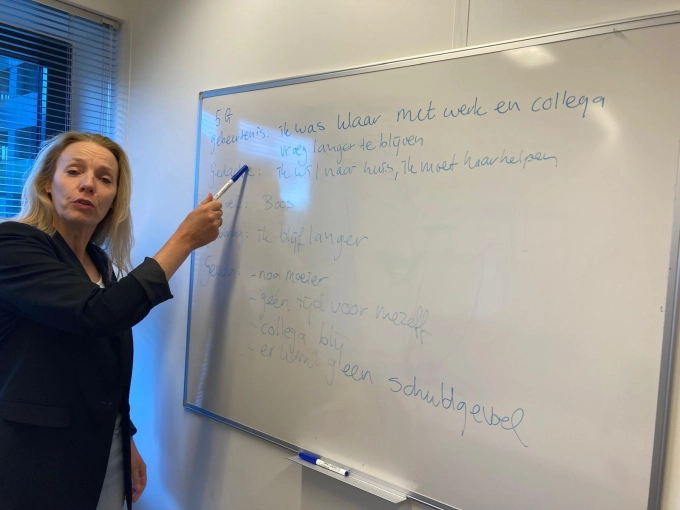 5G
gebeurtenis: ik was klaar met werk en collega
vroeg langer te blijven
ik wil naar huis, ik moet haar helpen
Boos
ik blijf langer
Gevolg: - nog moeier
- geen tijd voor mezelf
- collega blij
- er komt geen schuldgevoel